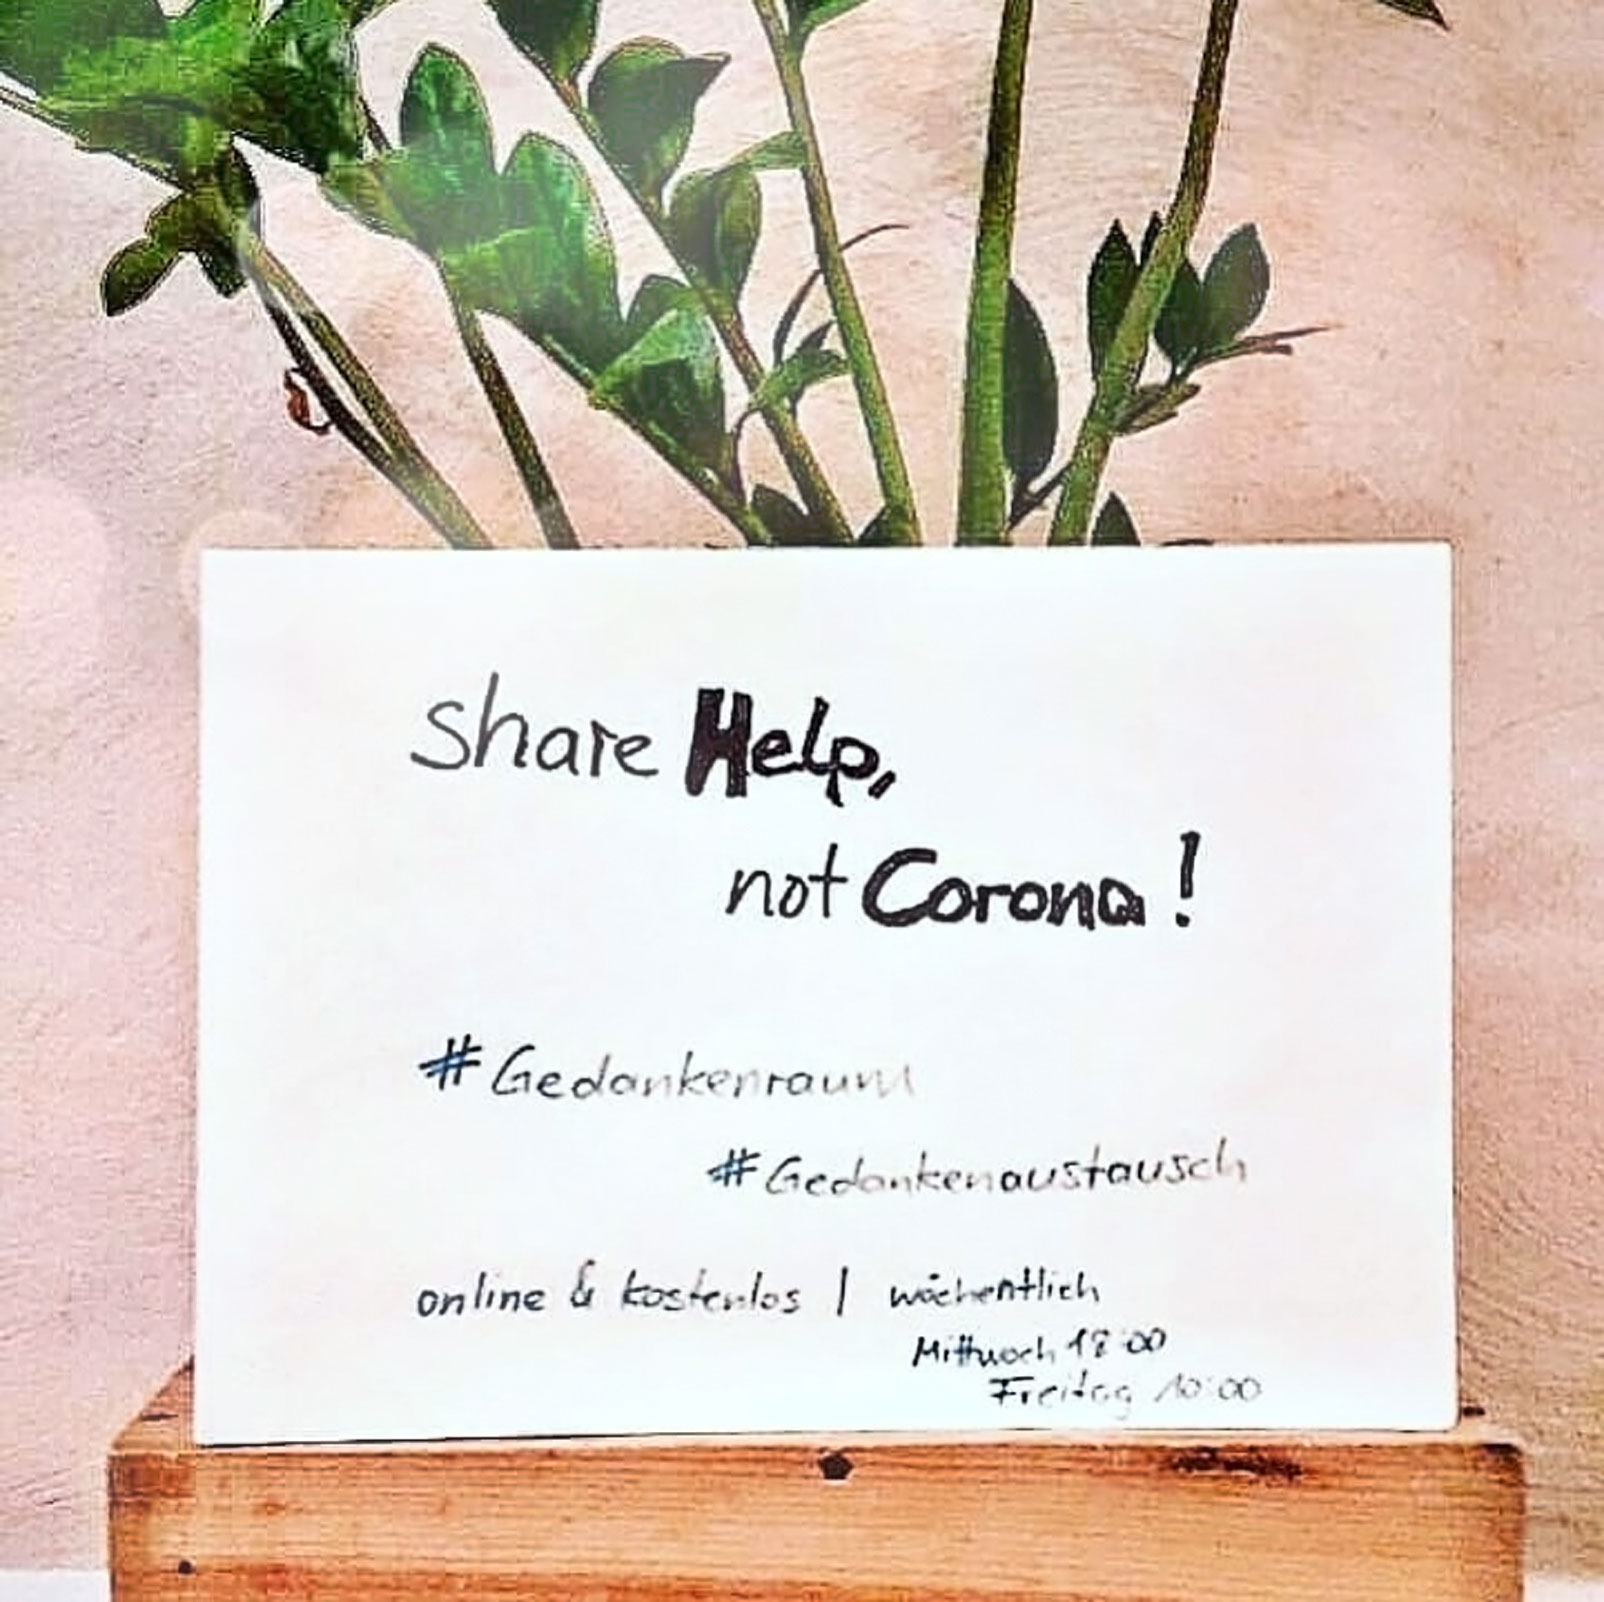 share Help,
not Corona!
#Gedankenraum
#Gedankenaustausch
online & kostenlos | wöchentlich
Mittwoch 18:00
Freitag 10:00